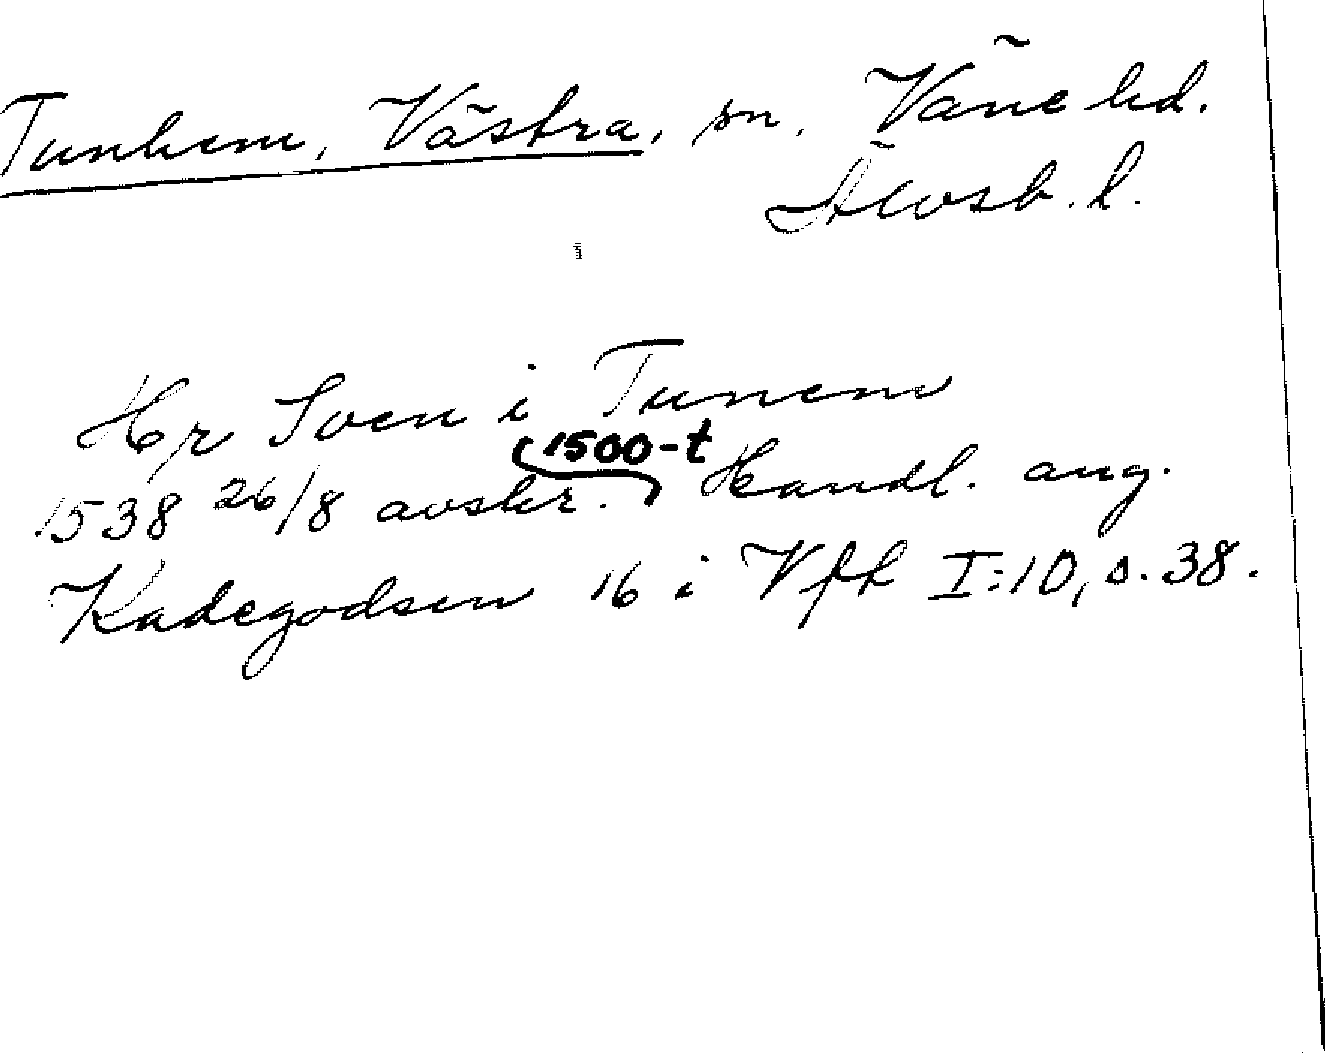 Tunhem, Västra, sn, Väne hd.
Älvsb. l.
Hr Sven i Tunem
1500-t
1538 26/8 avskr. Handl. ang.
Kadegodsen 16 i Vfl I:10, s. 38.